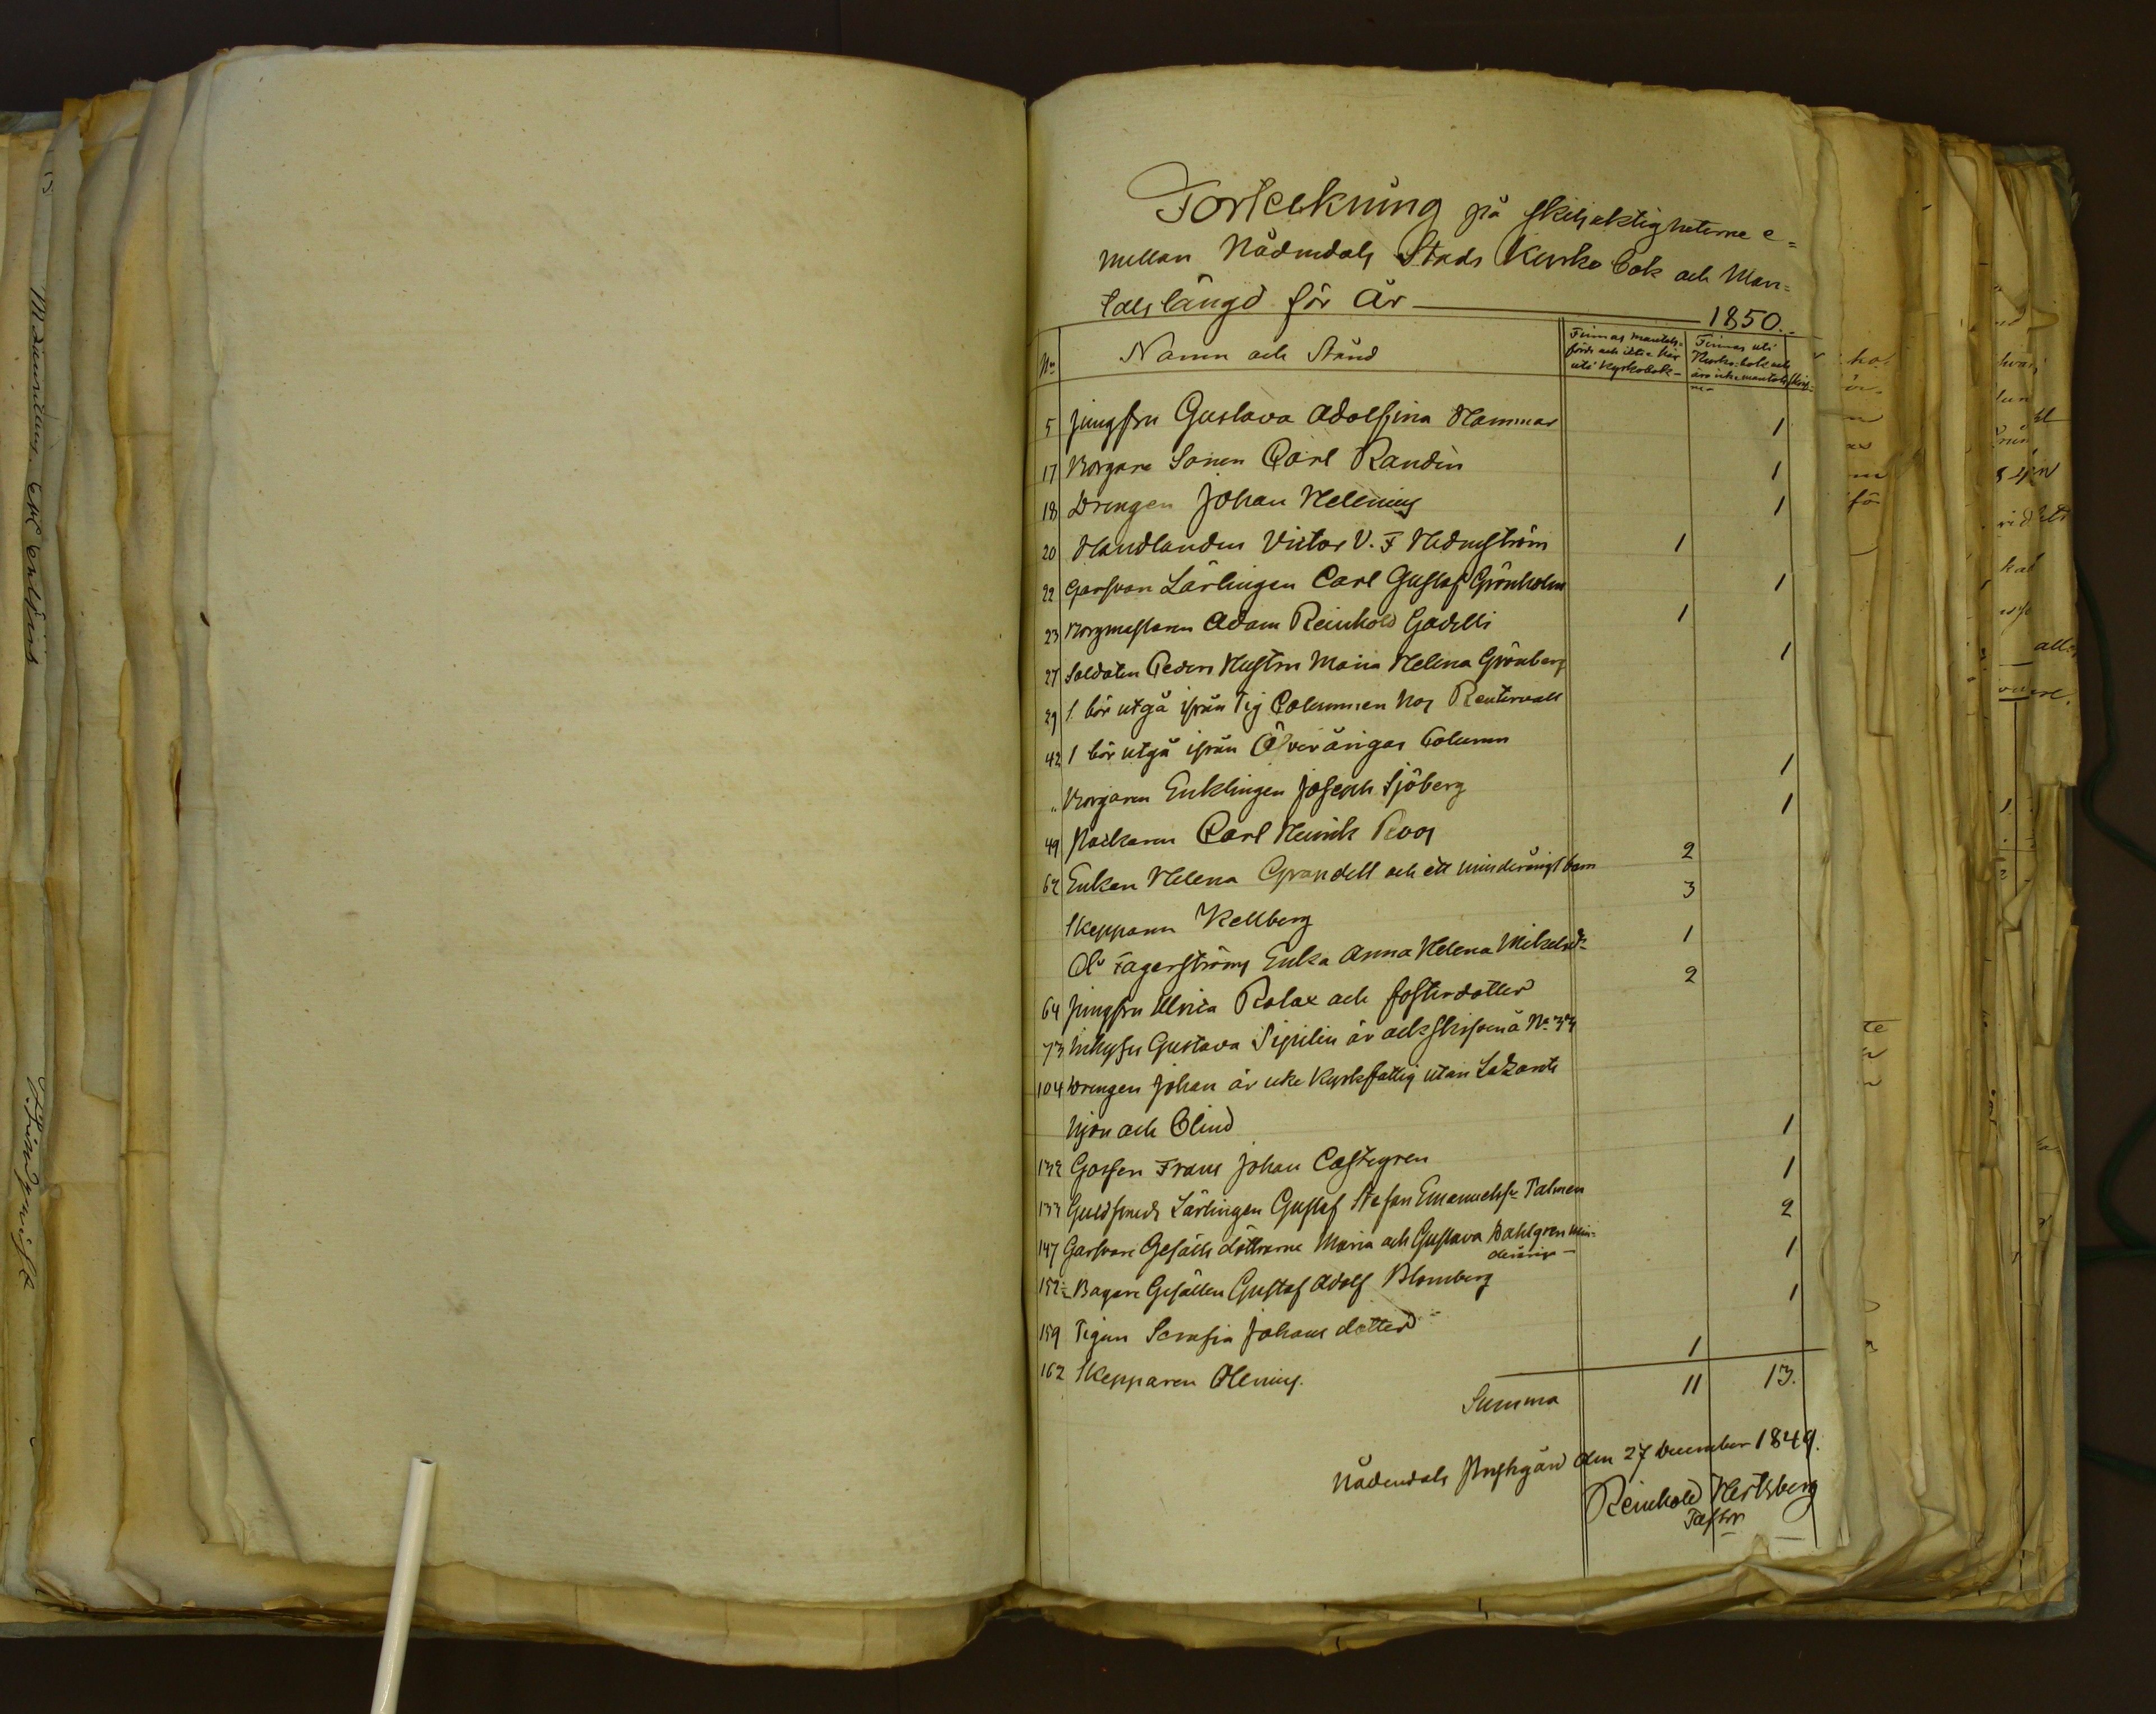 Förteckning på skiljaktigheterne e=
mellan Nådendals Stads Kyrko bok och Man=
talslängd för År 1850.
No Namn och Stånd Finnas mantals= Finnas uti
förde och icke här Kyrko-bok och
uti Kyrkobok äro icke mantals skrif=
ne
5 Jungfru Gustava Adolfina Hammar 1
17 Borgare Sonen Carl Randin 1
18 Drengen Johan Helenius 1
20 Handlanden Victor V. F Hedmström 1
22 Garfvare Lärlingen Carl Gustaf Grönholm 1
23 Borgmästaren Adam Reinhold Gadelli 1
27 Soldaten Peders Hustru Maria Helena Grönberg 1
29 1 bör utgå ifrån Pig Columnen hos Reutervall
42 1 bör utgå ifrån Öfveråriges Column
" Borgaren Enklingen Joseph Sjöberg 1
49 Backaren Carl Henrik Roos 1
62 Enkan Helena Grandell och ett minderårigt barn 2
Skepparen Kellberg 3
Ol: Fagerströms Enka Anna Helena Mikelsdr 1
64 Jungfru Ulrica Rolax och fosterdotter 2
73 Inhyses Gustava Sipilin är ock skrifven å No 34
104 Drengen Johan är icke kyrkfattig utan Lazarets
hjon och Blind
132 Gossen Frans Johan Castegren 1
133 Guldsmeds Lärlingen Gustaf Stefan Emanuelss: Palmen 1
147 Garfvare Gesälls döttrarne Maria och Gustava Dahlgren min=
derårige 2
152 Bagare Gesällen Gustaf Adolf Blomberg 1
159 Pigan Serafia Johans dotter 1
162 Skepparen Olenius. 1
Summa 11 13.
Nådendals Prestgård den 27 December 1849.
Reinhold Hertzberg
Pastor